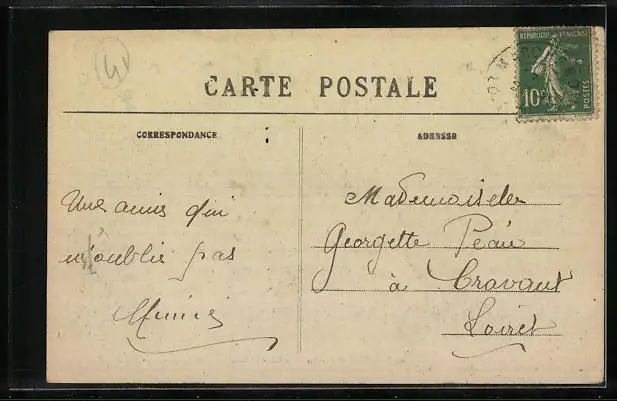 41
CARTE POSTALE
REPUBLIQUE FRANÇAISE
10c
POSTES
CORRESPONDANCE
ADRESSE
Une amis qui
n'oublie pas
Mimie
Mademoiselle
Georgette Péau
à Cravant
Loiret